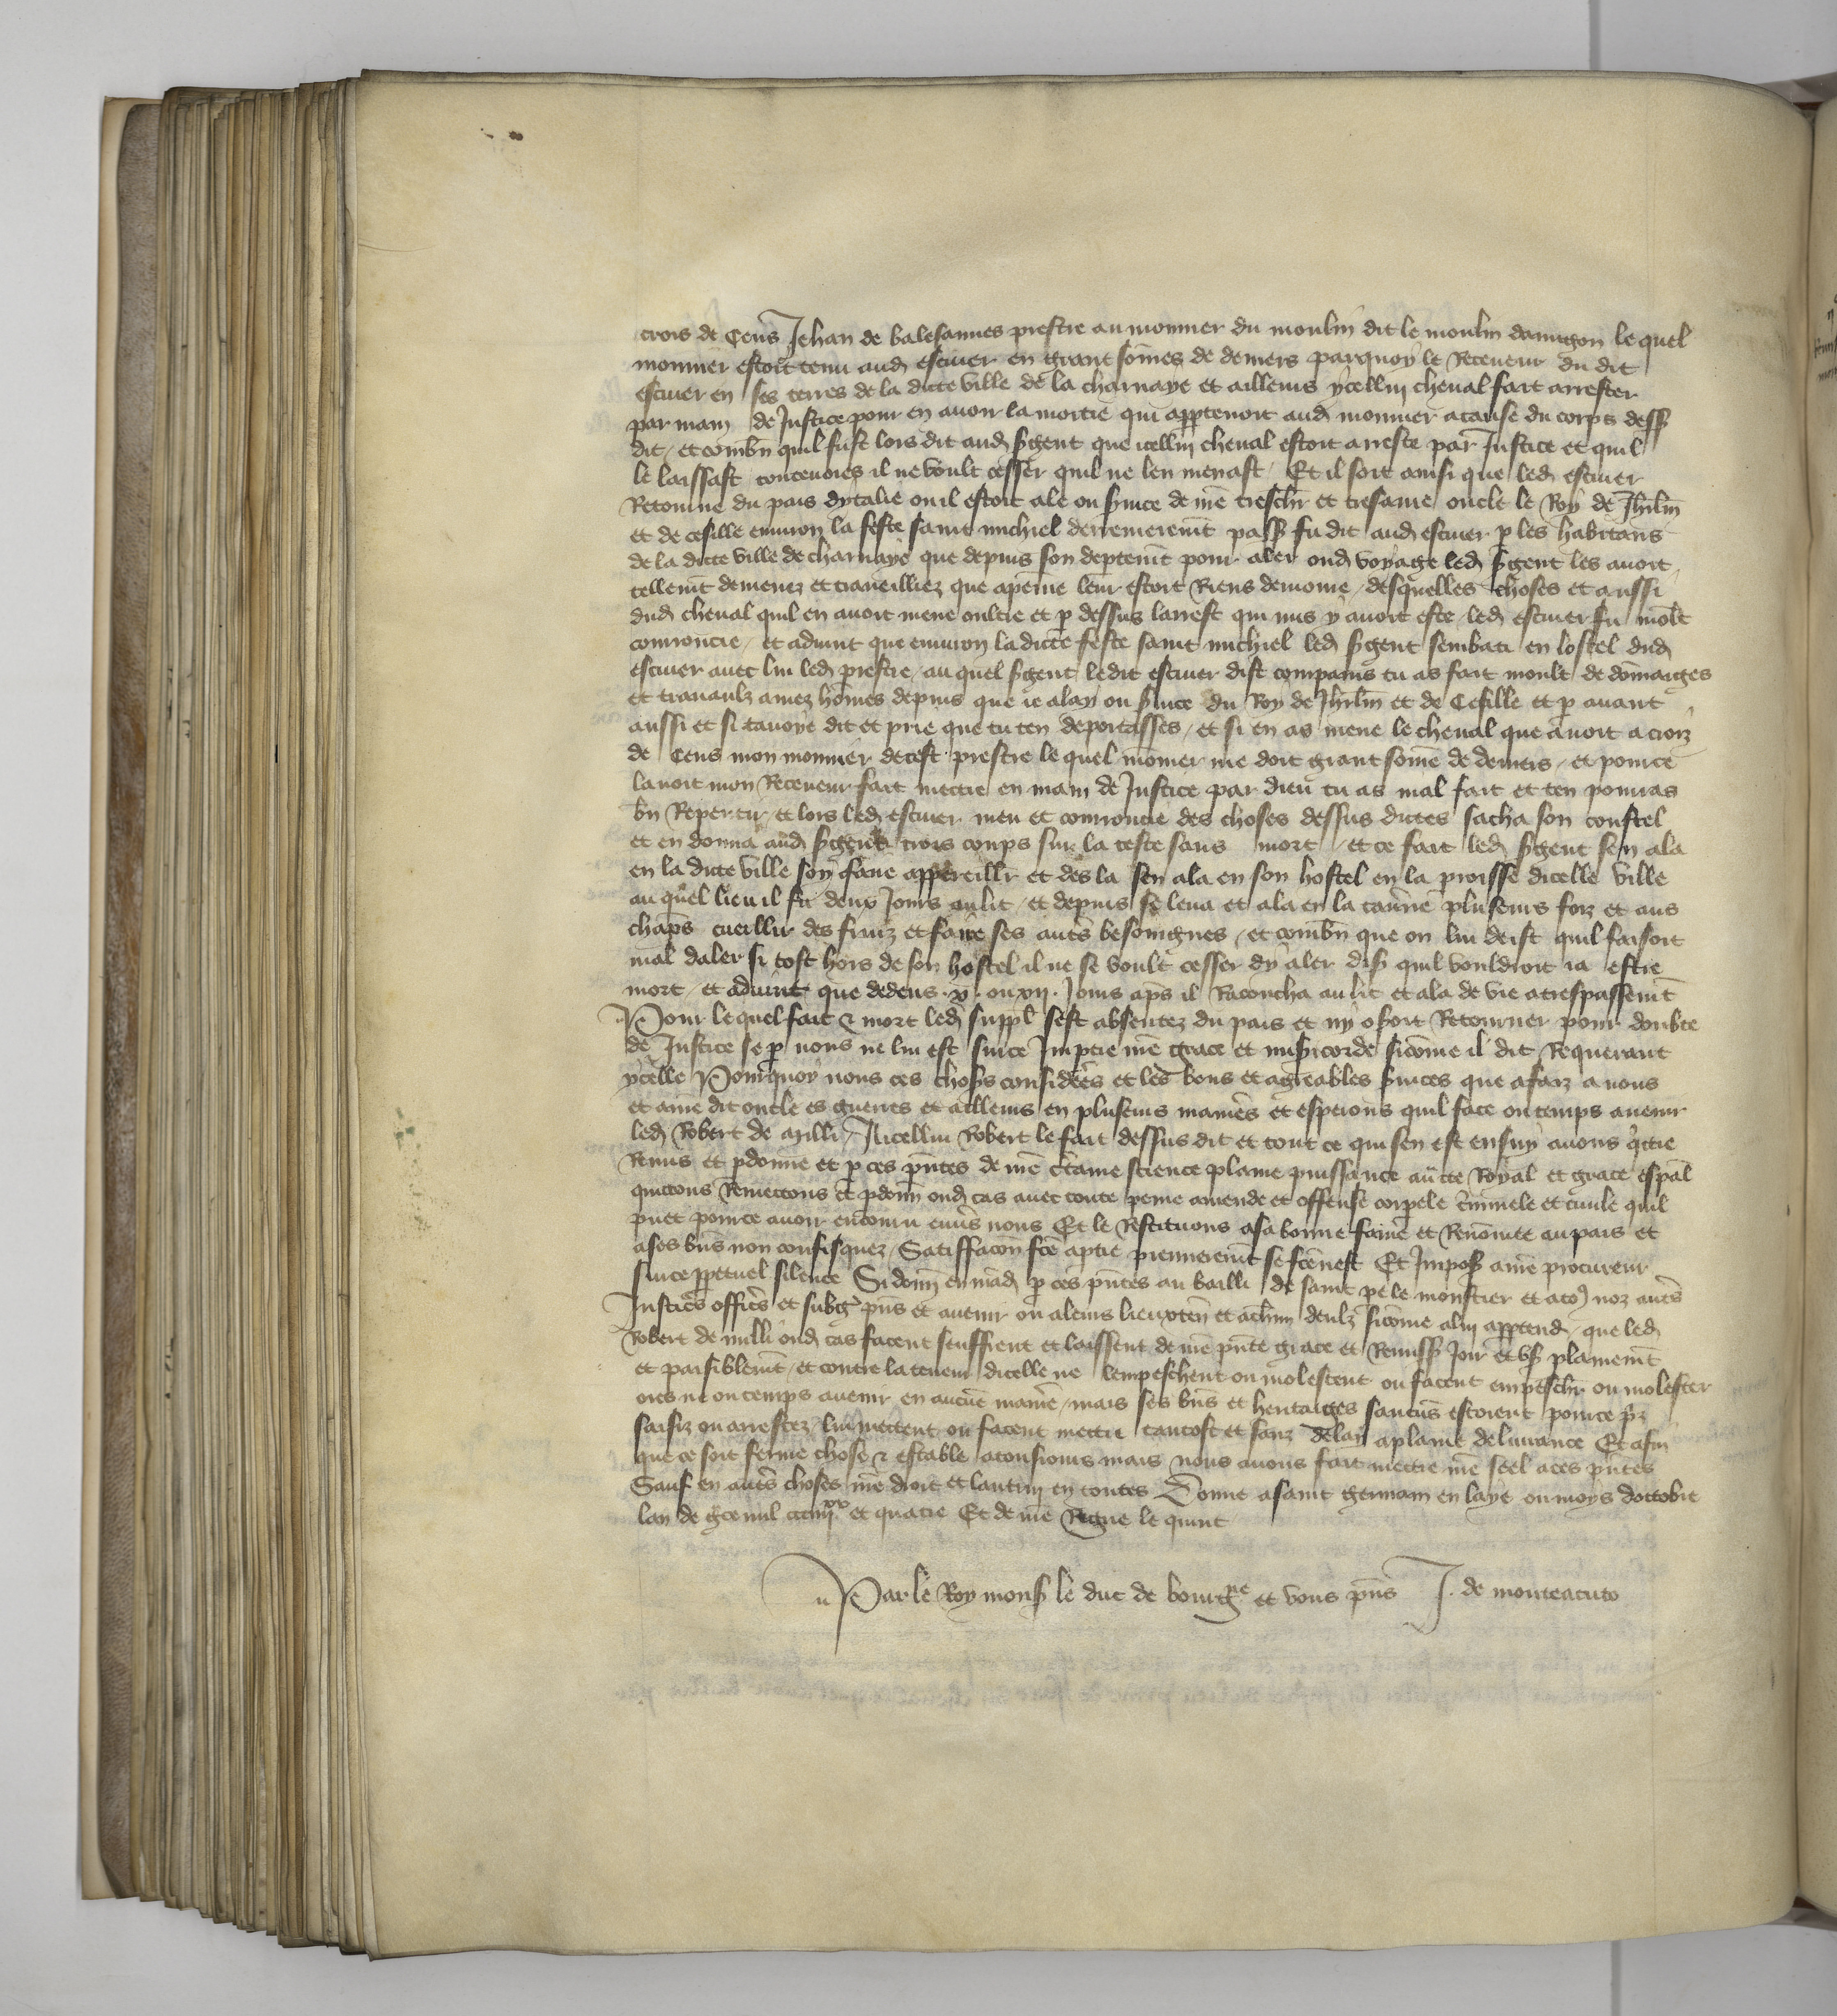 crois de Cens Jehan de balesannes prestre au monnier du moulin dit le moulin danugon le quel
monnier estoit tenu aud escuier en grant sommes de deniers parquoy le Receueur du dit
escuier en ses terres de la dicte ville de la charnaye et ailleurs ycellui cheual fait arrester
par main de Justice pour en auoir la moitie qui apptenoit aud monnier a cause du corps dess
dit / et combn quil fust lors dit aud sgent que icellui cheual estoit arreste par Justice et quil
le laissast touteuoies il ne voult cesser quil ne len menast / Et il soit ainsi que led escuier
Retourne du pais dytalie ou il estoit ale ou suice de nre treschr et tresame oncle le Roy de Jhrlm
et de cesille enuiron la feste saint michiel derrenieremt pass fu dit aud escuier p les habitans
de la dicte ville de charnaye que depuis son deptemt pour aler oud voyage led sgent les auoit
tellemt demenez et traueilliez que apeine leur estoit Riens demoure / desquelles choses et aussi
dud cheual quil en auoit mene oultre et p dessus larrest qui mis y auoit este led escuier fu molt
courroucie / et aduint que enuiron ladicte feste saint michiel led sgent sembati en lostel dud
escuier auec lui led prestre / au quel sgent ledit escuier dist compains tu as fait moult de dommaiges
et trauaulz a mez hommes depuis que ie alay ou suice du Roy de Jhrlm et de Cesille et p auant
aussi et si tauoye dit et prie que tu ten deportasses / et si en as mene le cheual que auoit a crois
de Cens mon monnier de cest prestre le quel monnier me doit grant somme de deniers / et pource
lauoit mon Receueur fait mettre en main de Justice par dieu tu as mal fait et ten pourras
bn Repentir / et lors led escuier meu et courroucie des choses dessus dictes sacha son coustel
et en donna aud sgent trois coups sur la teste sans mort / et ce fait led sgent sen ala
en la dicte ville soy faire appareillr et des la sen ala en son hostel en la proisse dicelle ville
au quel lieu il fu deux Jours au lit / et depuis se leua et ala en la tauerne pluseurs foiz et aus
chaps cueillir des fruiz et faire ses autres besoingnes / et combn que on lui deist quil faisoit
mal daler si tost hors de son hostel il ne se voult cesser dy aler dis quil vouldroit ia estre
mort / et aduint que dedens .x. ou xii. Jours aps il Racoucha au lit et ala de vie a trespassemt
Pour lequel fait & mort led suppl sest absentez du pais et ny oseroit Retourner pour doubte
de Justice se p nous ne lui est suice Impetre nre grace et misicorde sicomme il dit Requerant
ycelle Pourquoy nous ces choses considerees et les bons et agreables suices que a faiz a nous
et a nre dit oncle es guerres et ailleurs en pluseurs manieres et esperons quil face ou temps auenir
led Robert de milli / A icellui Robert le fait dessus dit et tout ce qui sen est ensuy auons qctie
Remis et pdonne et p ces pntes de nre ctaine science plaine puissance auctte Royal et grace espal
quittons Remettons et pdonn oud cas auec toute peine amende et offense corpele criminele et ciuile quil
puet pource auoir encouru enuers nous Et le Restituons a sa bonne fame et Renommee au pais et
a ses bns non confisquez / Satiffacon fce aptie premieremt se fce nest Et Imposs a nre procureur
suice ppetuel silence Si donn en mad p ces pntes au bailli de saint pe le monstier et a to9 noz autres
Justicrs officrs et subgz pns et auenir ou a leurs lieuxten et achun deulz sicomme a lui apptend / que led
Robert de milli oud cas facent seuffrent et laissent de nre pnte grace et Remiss Joir et vs plainemt
et paisiblemt / et contre la teneur dicelle ne lempeschent ou molestent ou facent empeschr ou molester
ores ne ou temps auenir en aucune maniere / mais ses bns et heritaiges saucuns estoient pource ps
saisiz ou arrestez / lui mettent ou facent mettre tantost et sanz delay a plaine deliurance Et afin
que ce soit ferme chose & estable a tousiours mais nous auons fait mettre nre seel a ces pntes
Sauf en autres choses nre droit et lautrui en toutes Donne a saint germain en laye ou moys doctobre
lan de gce mil ccciiijxx et quatre Et de nre Regne le quint
Par le Roy mons le duc de bourgne et vous pns J. de monteacuto